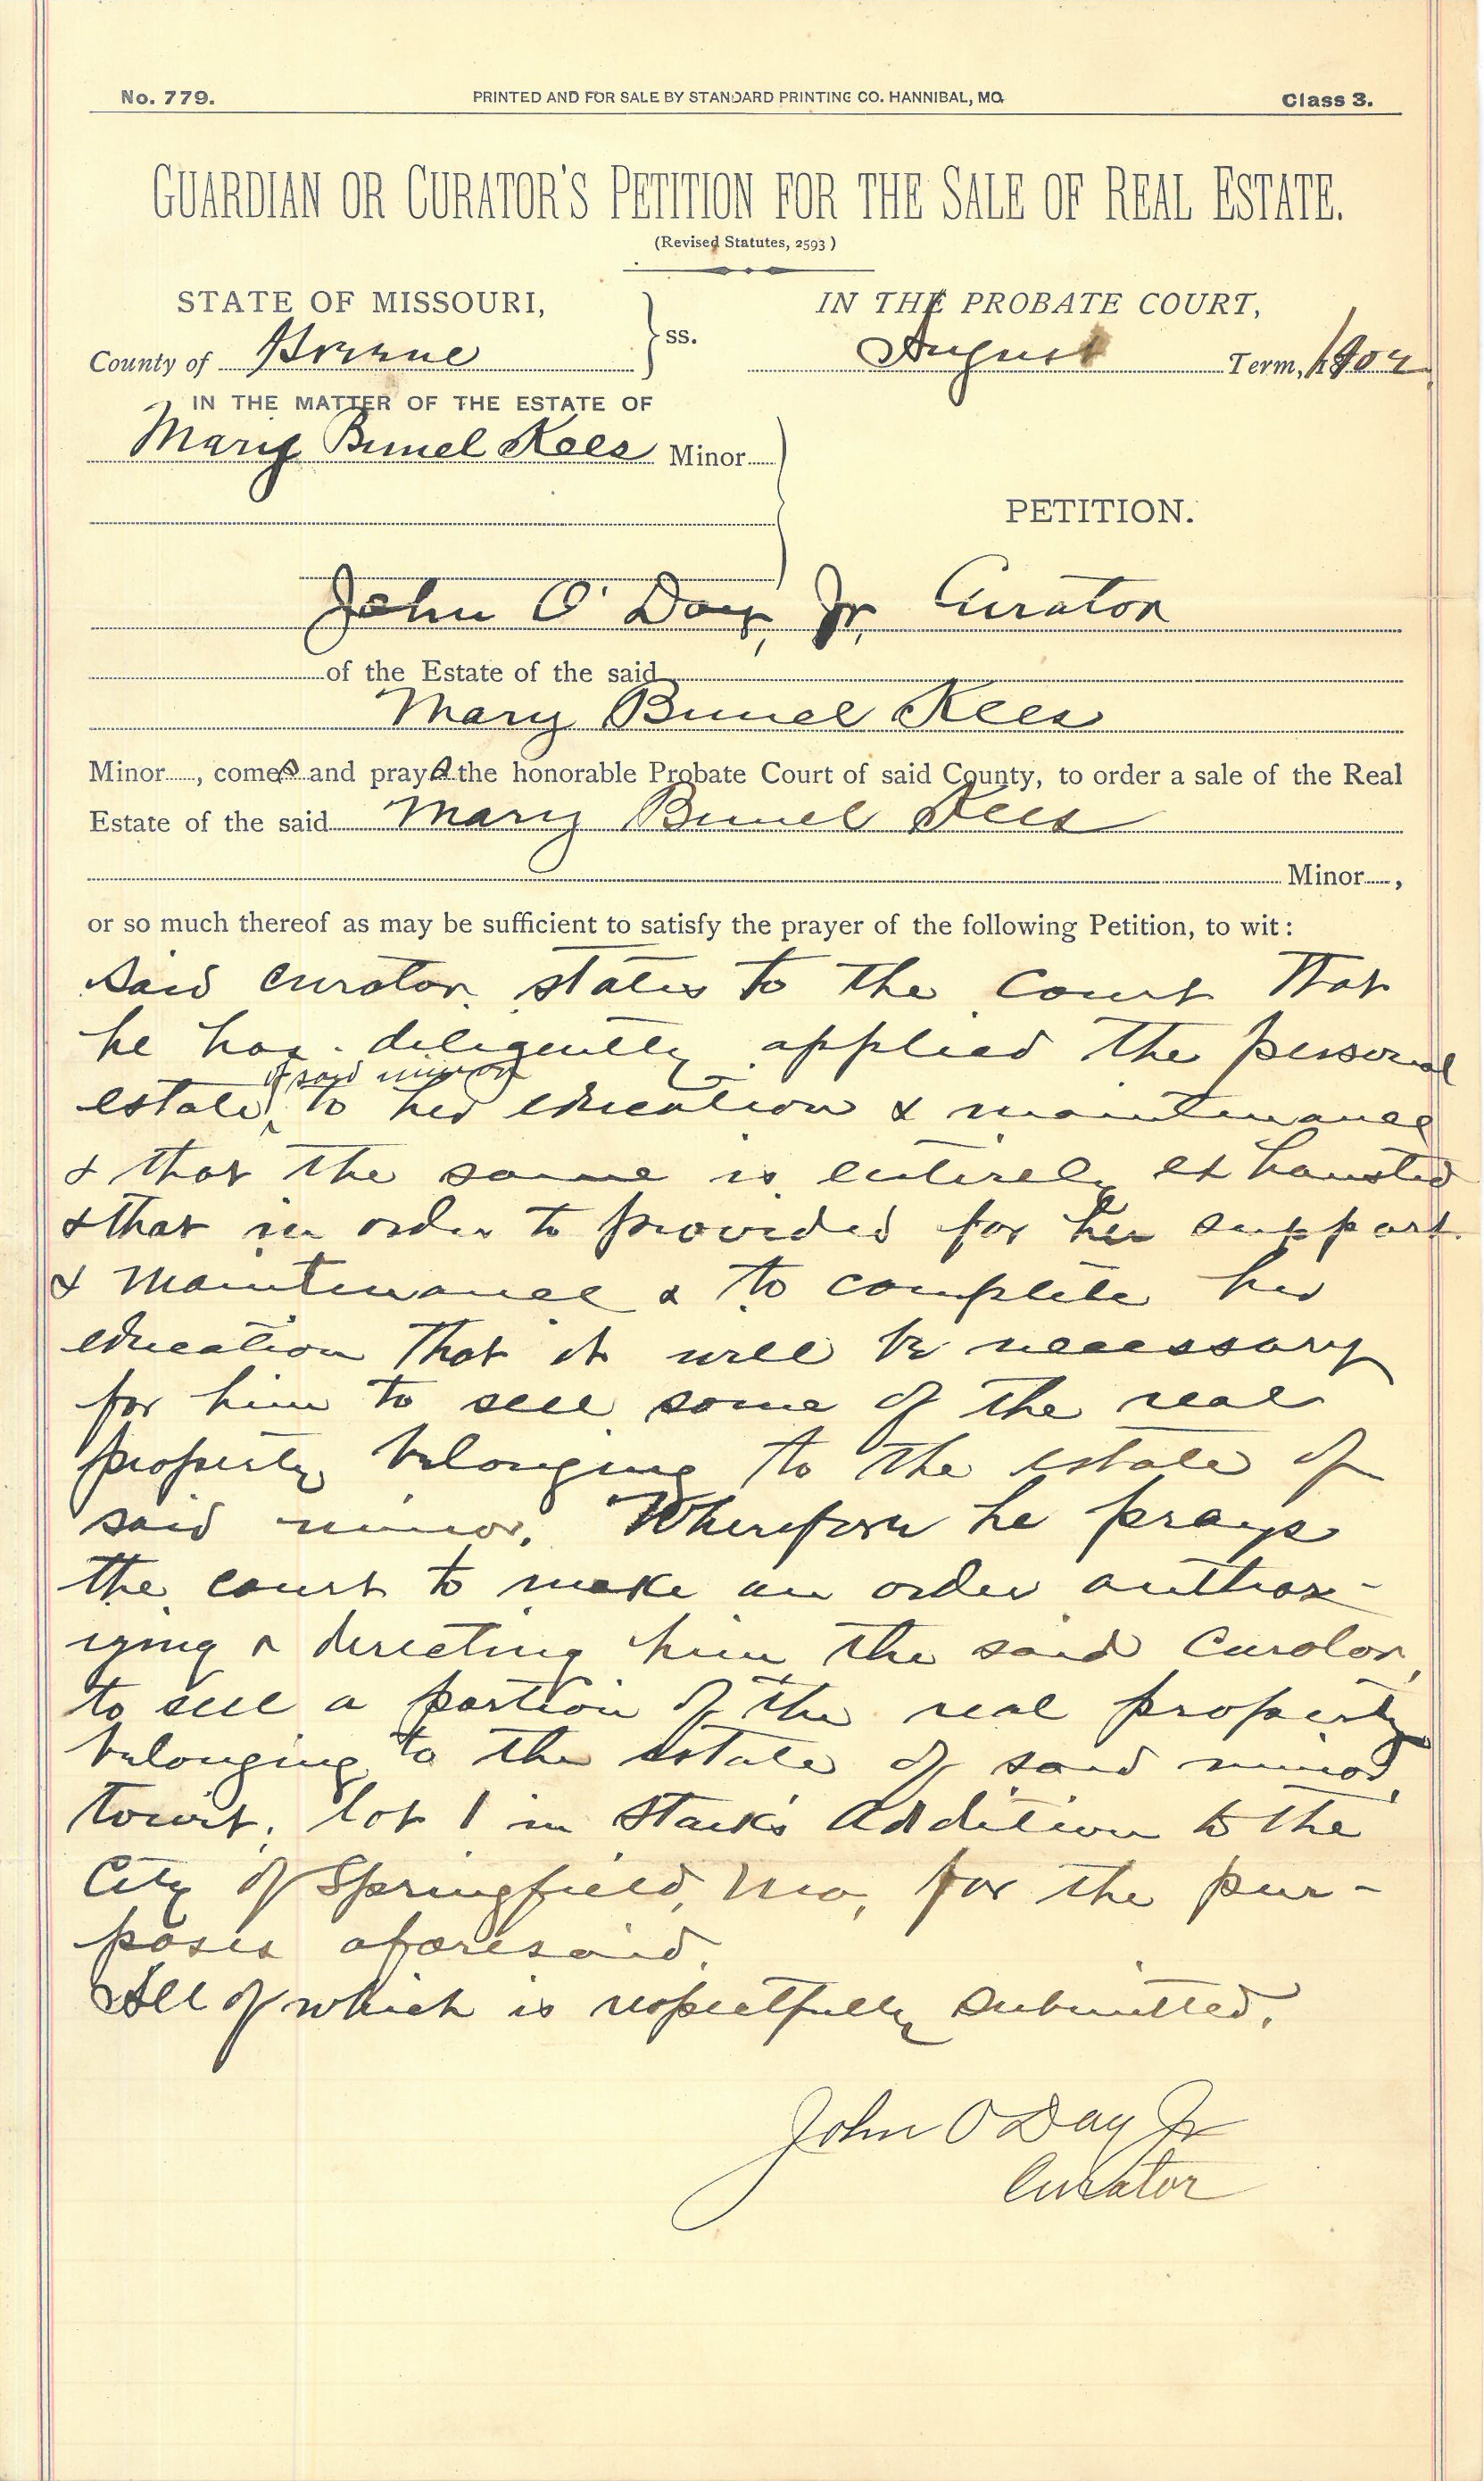 No. 779. PRINTED AND FOR SALE BY STANDARD PRINTING CO. HANNIBAL, MO. Class 3.
GUARDIAN OR CURATOR'S PETITION FOR THE SALE OF REAL ESTATE.
(Revised Statutes, 2593)
STATE OF MISSOURI, } ss. IN THE PROBATE COURT,
County of Greene August Term, 1902
IN THE MATTER OF THE ESTATE OF
Mary Kees Minor
PETITION.
John O'Day, Jr, Curator
of the Estate of the said
Mary Kees
Minor , comes and prays the honorable Probate Court of said County, to order a sale of the Real
Estate of the said Mary Kees
Minor ,
or so much thereof as may be sufficient to satisfy the prayer of the following Petition, to wit:
Said curator states to the Court that
he has diligently applied the personal
estate, of said minor to her education & maintenance
& that the same is entirely exhausted
& that in order to provided for her support
& maintenance & to complete her
education that it will be necessary
for him to sell some of the real
property belonging to the estate of
said minor. Wherefore he prays
the court to make an order author-
izing & directing him the said curator,
to sell a portion of the real property
belonging to the estate of said minor,
towit; lot 1 in Stark's Addition to the
City of Springfield, Mo, for the pur-
poses aforesaid.
All of which is respectfully submitted.
John O Day Jr
Curator